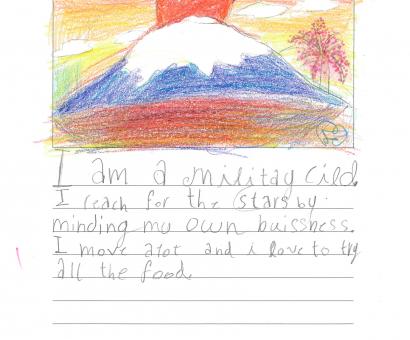 I am a militay cild.
I reach for the stars by
minding my own buissness.
I move alot and i love to try
all the food.